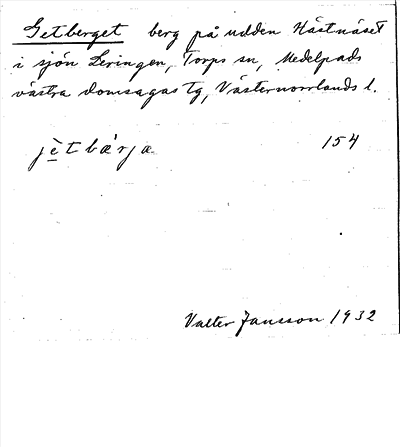 Getberget berg på udden Hästnäset
i sjön Leringen, Torps sn, Medelpads
västra domsagas tg, Västernorrlands l.
jètbärja 154
Valter Jansson 1932